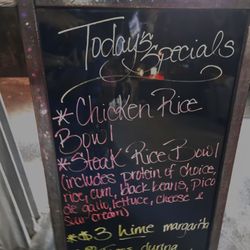 Today's
Specials
* Chicken Rice
Bowl
* Steak Rice Bowl
(includes protein of choice,
rice, corn, black beans, pico
de gallo, lettuce, cheese &
sour cream)
* $3 lime margarita
during